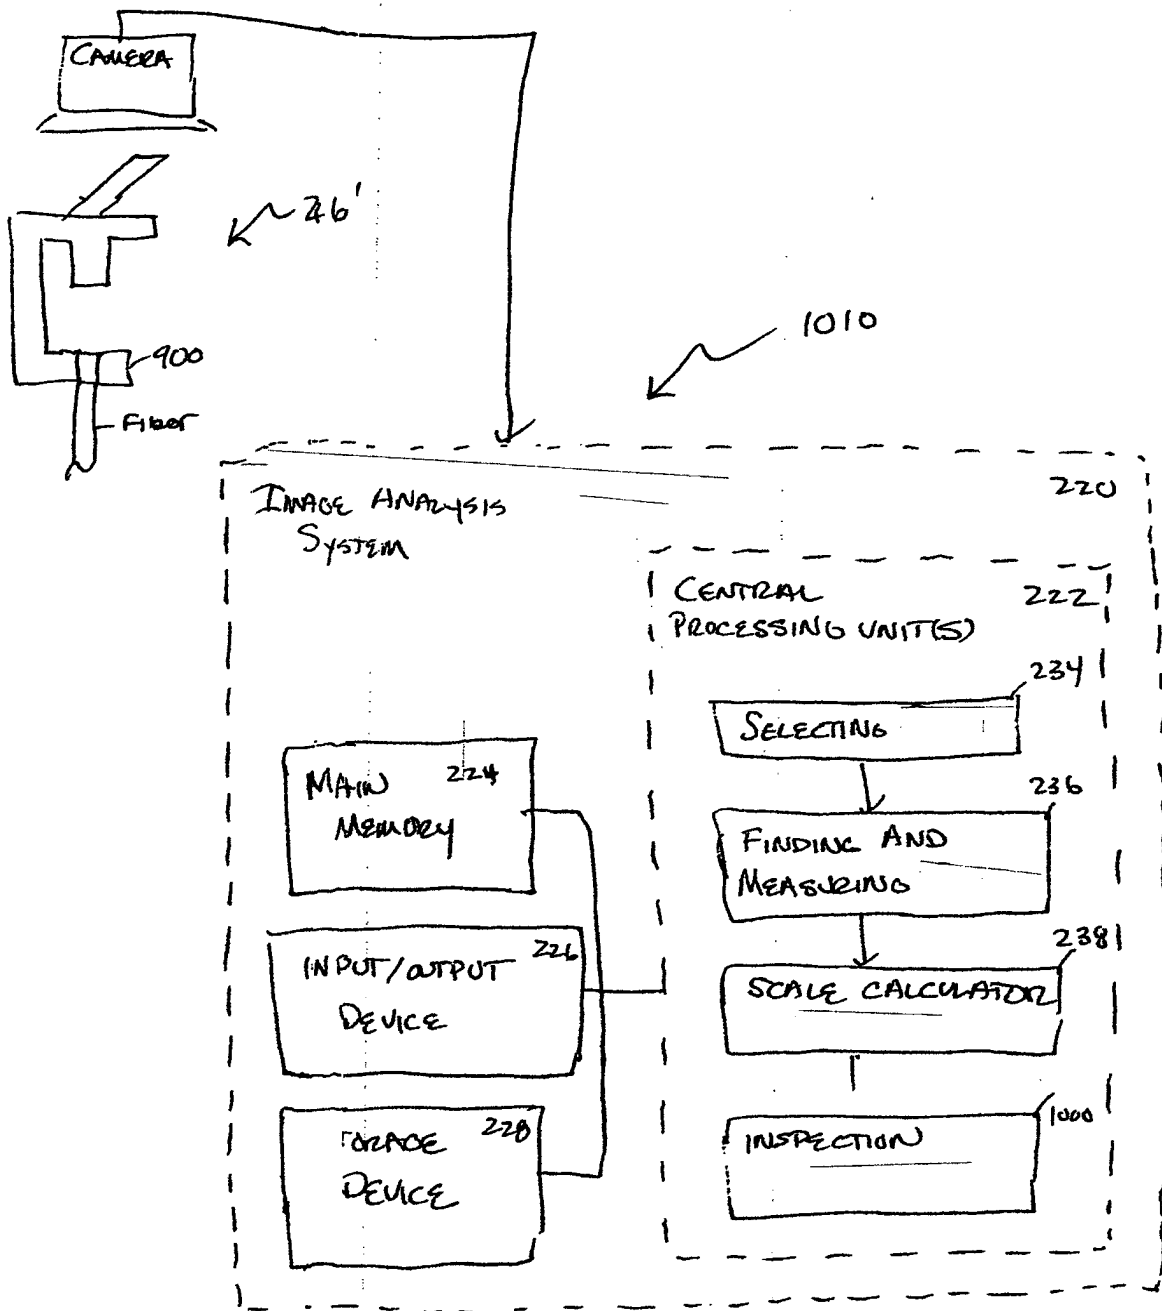 CAMERA
246'
900
Fiber
1010
IMAGE ANALYSIS
SYSTEM
220
CENTRAL
PROCESSING UNIT(S)
222
234
SELECTING
236
FINDING AND
MEASURING
238
SCALE CALCULATOR
1000
INSPECTION
MAIN
MEMORY
224
INPUT/OUTPUT
DEVICE
226
DEVICE
228